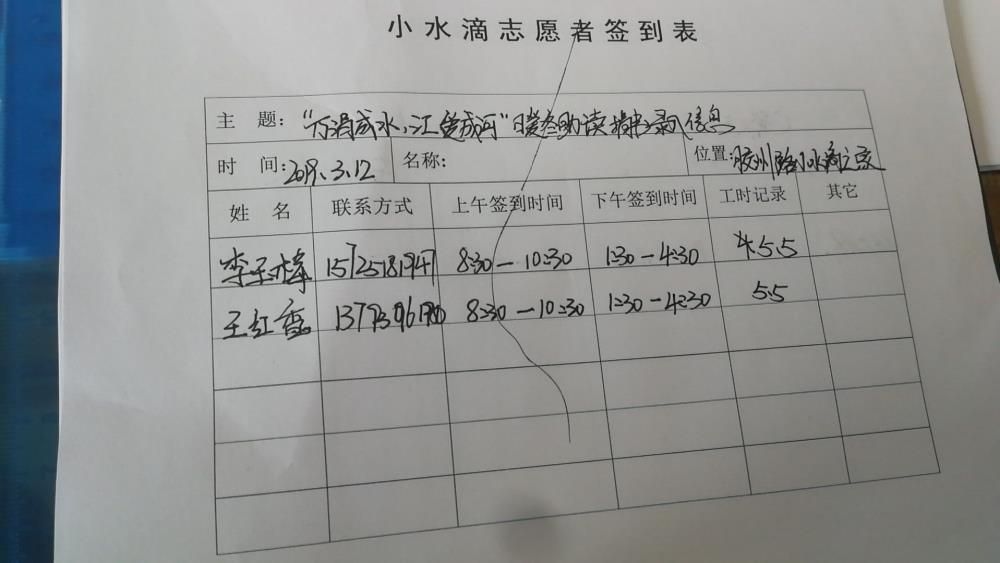 小水滴志愿者签到表
主 题：“万涓成水，江楚成河”日爱叁助读 捐书录入信息
时 间：2019.3.12 名称： 位置：胶州路小水滴之家
姓 名 联系方式 上午签到时间 下午签到时间 工时记录 其它
李玉峰 15725181947 8:30—10:30 1:30—4:30 5.5
王红香 8:30—10:30 1:30—4:30 5.5